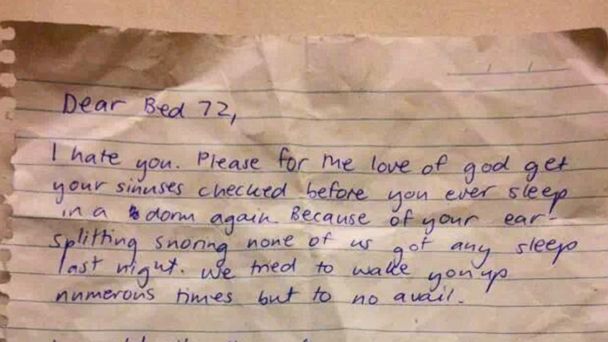 Dear Bed 72,
I hate you. Please for the love of god get
your sinuses checked before you ever sleep
in a dorm again. Because of your ear-
splitting snoring none of us got any sleep
last night. We tried to wake you up
numerous times but to no avail.